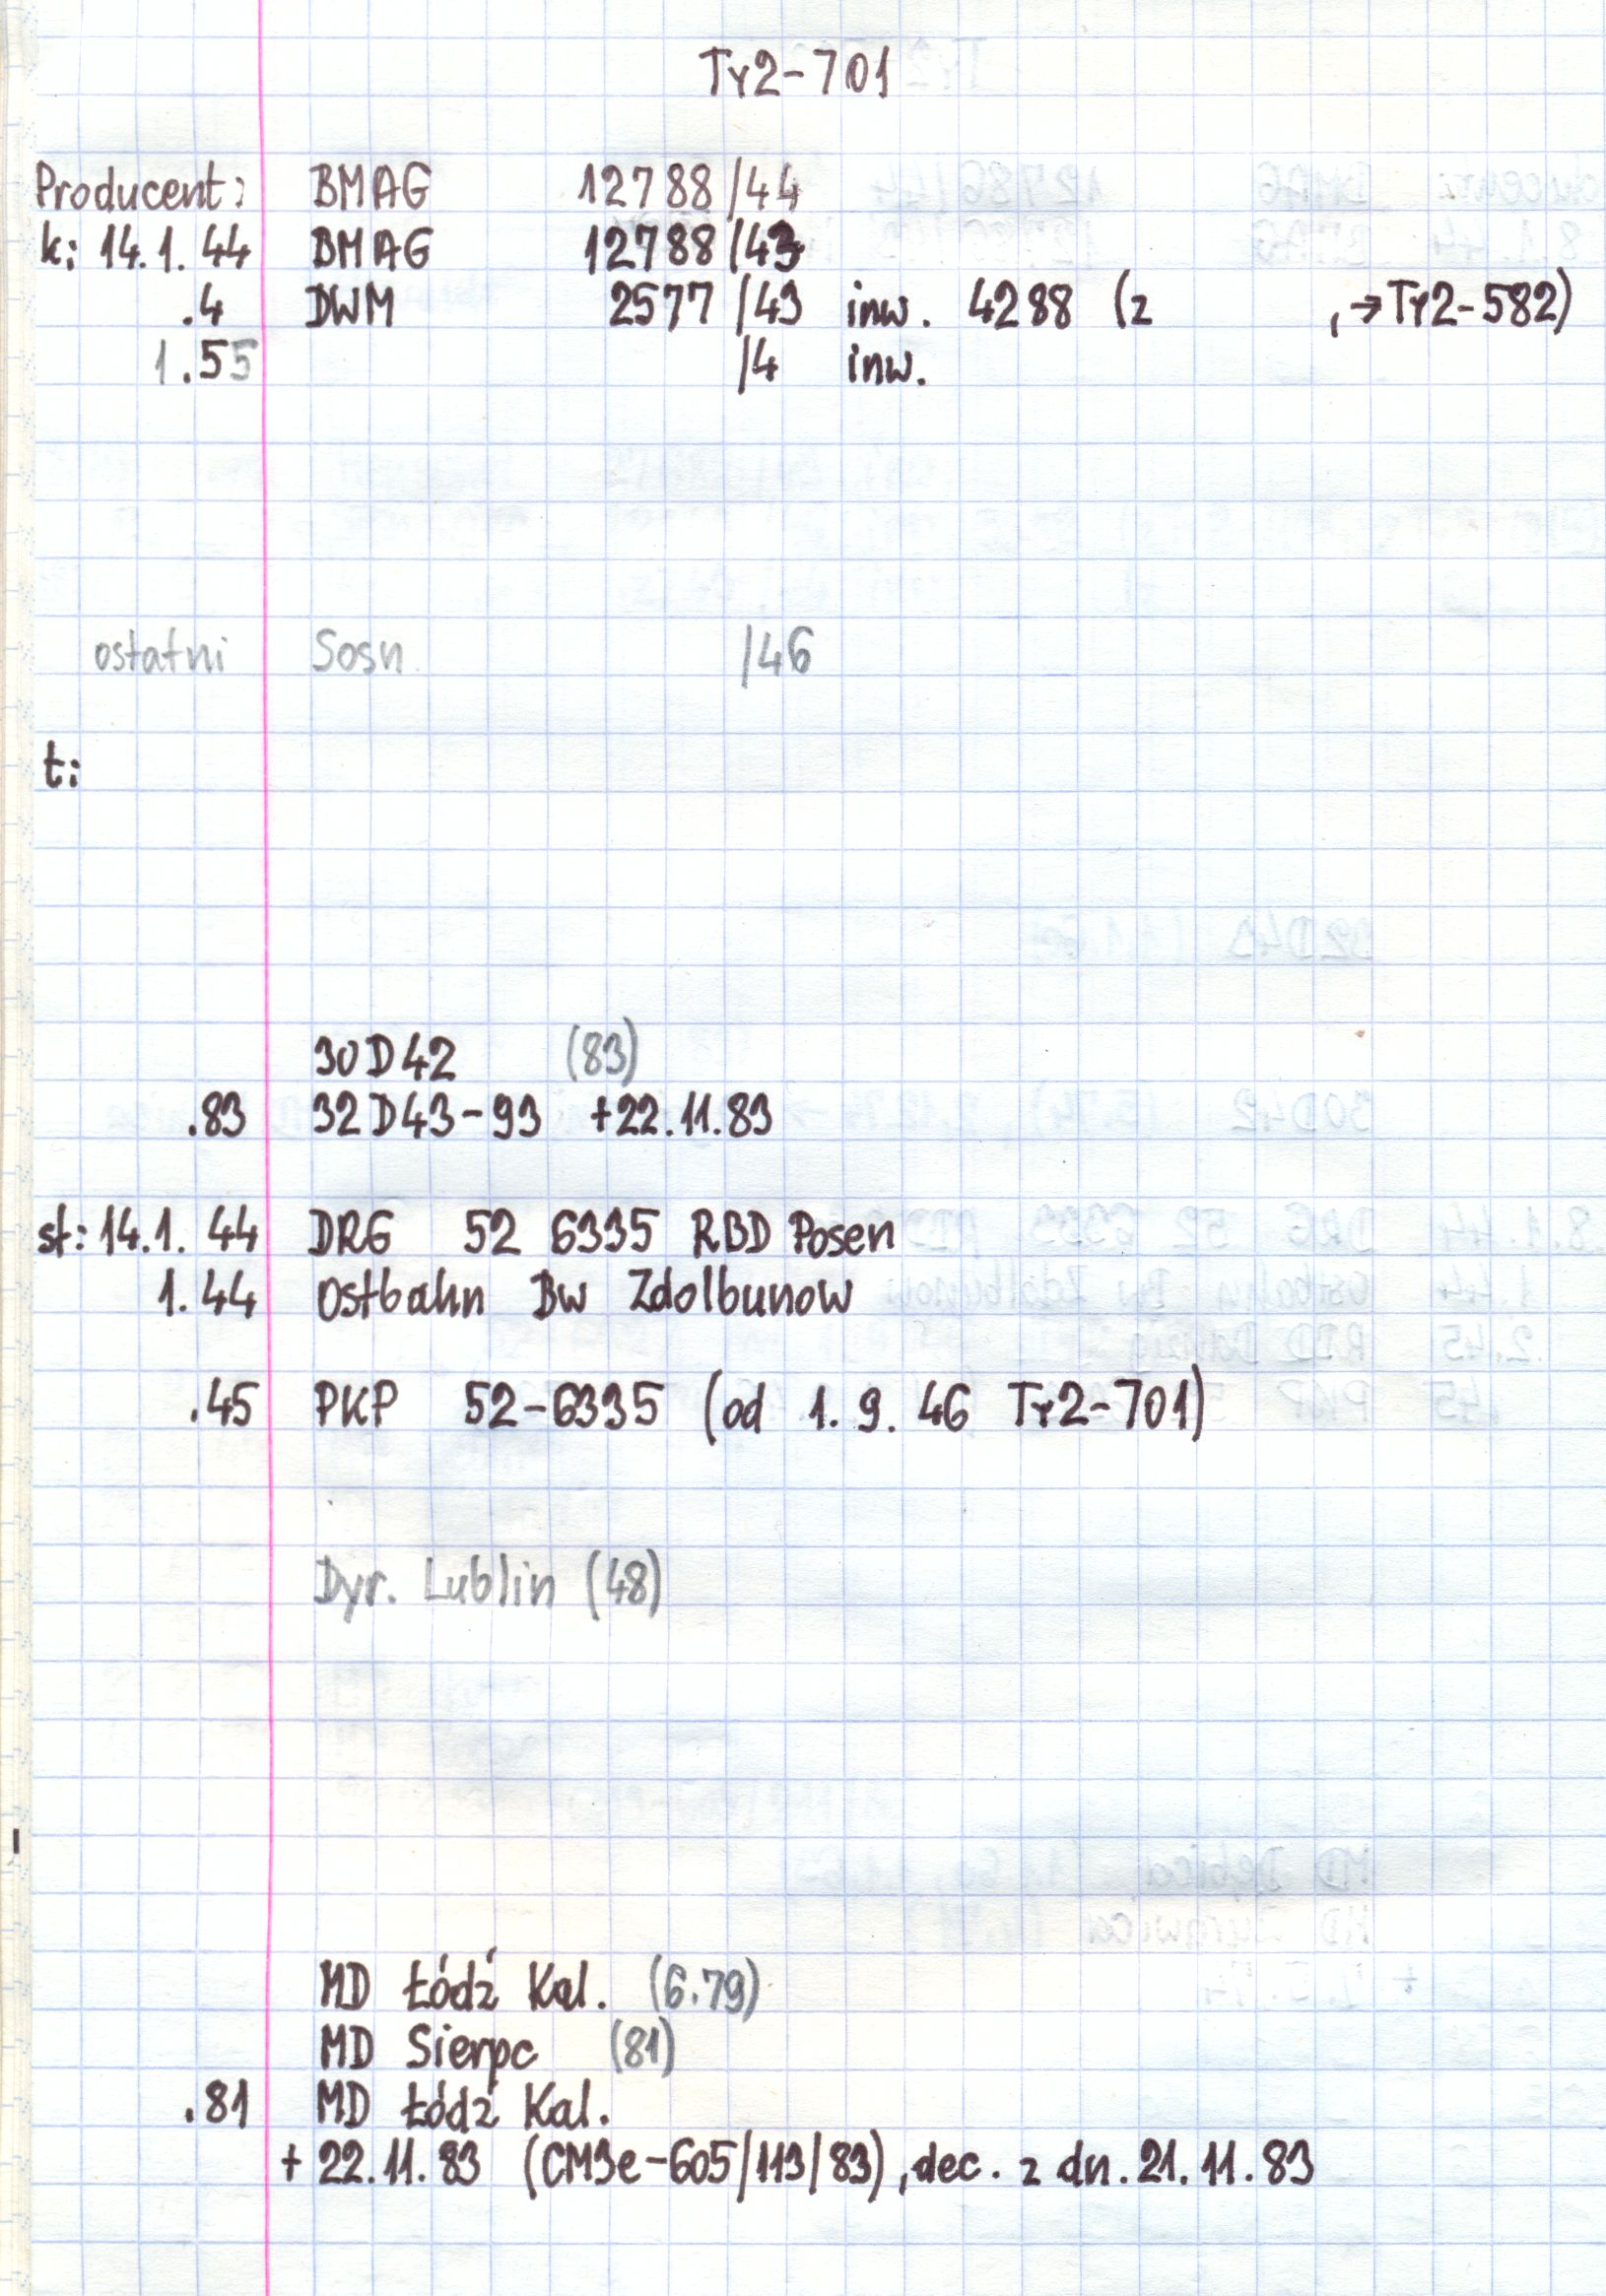 Ty2-701
Producent: BMAG 12788/44
k: 14.1.44 BMAG 12788/43
.4 DWM 2577/43 inw. 4288 (z , →Ty2-582)
1.55 /4 inw.
ostatni Sosn. /46
t:
30D42 (83)
.83 32D43-93 +22.11.83
st: 14.1.44 DRG 52 6335 RBD Posen
1.44 Ostbahn Bw Zdolbunow
.45 PKP 52-6335 (od 1.9.46 Ty2-701)
Dyr. Lublin (48)
MD Łódź Kal. (6.79)
MD Sierpc (81)
.81 MD Łódź Kal.
+ 22.11.83 (CM3e-605/113/83), dec. z dn. 21.11.83